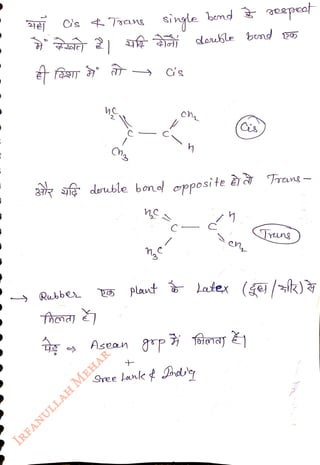 यहाँ Cis & Trans single bond के respect
में देखते है। यदि दोनों double bond एक
ही दिशा में तो → Cis
H2C CH2
C — C Cis
CH3 H
और यदि double bond opposite हो तो Trans -
H2C H
C — C Trans
H3C CH2
→ Rubber एक plant के Latex (दूध/क्षीर) से
मिलता है।
पेड़ ⇒ Asean grp में मिलता है।
+
Sree Lank & India
IRFANULLAH MEHAR